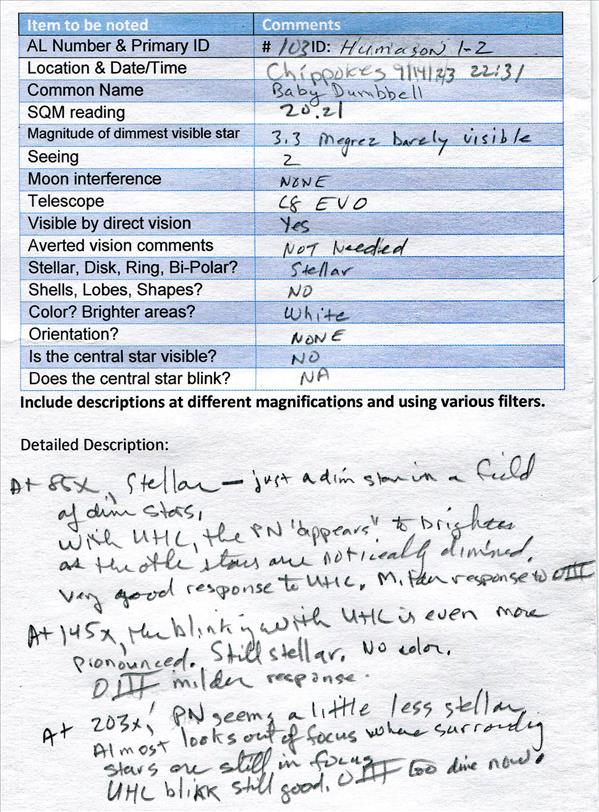 Item to be noted Comments
AL Number & Primary ID # 103 ID: Humason 1-2
Location & Date/Time Chippokes 9/14/23 22:31
Common Name Baby Dumbbell
SQM reading 20.21
Magnitude of dimmest visible star 3.3 Megrez barely visible
Seeing 2
Moon interference NONE
Telescope C8 EVO
Visible by direct vision Yes
Averted vision comments NOT Needed
Stellar, Disk, Ring, Bi-Polar? Stellar
Shells, Lobes, Shapes? NO
Color? Brighter areas? White
Orientation? NONE
Is the central star visible? NO
Does the central star blink? NA
Include descriptions at different magnifications and using various filters.
Detailed Description:
At 85x, Stellar — just a dim star in a field
of dim stars,
with UHC, the PN "appears" to brighten
as the othe stars are noticeally dimined.
Very good response to UHC. Milder response to OIII
At 145x, the blinking with UHC is even more
pronounced. Still stellar. No color.
OIII milder response.
At 203x, PN seems a little less stellar,
Almost looks out of focus where surrounding
stars are still in focus.
UHC blikk still good. OIII too dim now.